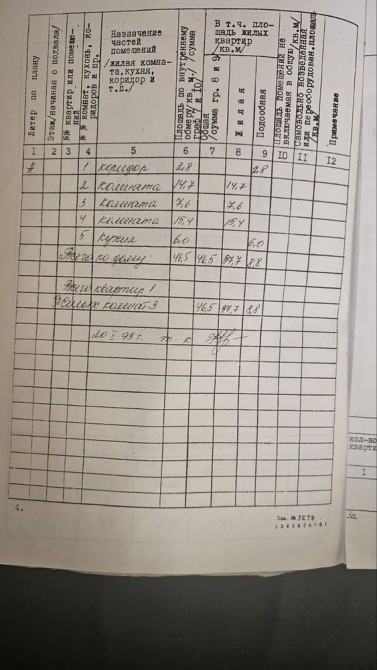 Литер по плану
Этаж/начиная с подвала/
№№ квартир или помеще-
ний
№№ комнат, кухонь, ко-
ридоров и пр.
Назначение
частей
помещений
/жилая комна-
та, кухня,
коридор и
т.п./
Площадь по внутреннему
обмеру/кв.м./сумма
граф 7 и 10/
В т.ч. пло-
щадь жилых
квартир
/кв.м/
Общая
/сумма гр. 8 и 9/
Жилая
Подсобная
Площадь помещений не
включаемая в общую/кв.м/
Самовольно возведенная
или переоборудован.площадь
/кв.м/
Примечание
1 2 3 4 5 6 7 8 9 10 11 12
А 1 коридор 2,8 2,8
2 комната 14,7 14,7
3 комната 7,6 7,6
4 комната 15,4 15,4
5 кухня 6,0 6,0
Всего по дому: 46,5 46,5 37,7 8,8
Всего квартир 1
Жилых комнат 3 46,5 37,7 8,8
4.
Зак. № 3278
кол-во
кварти
I